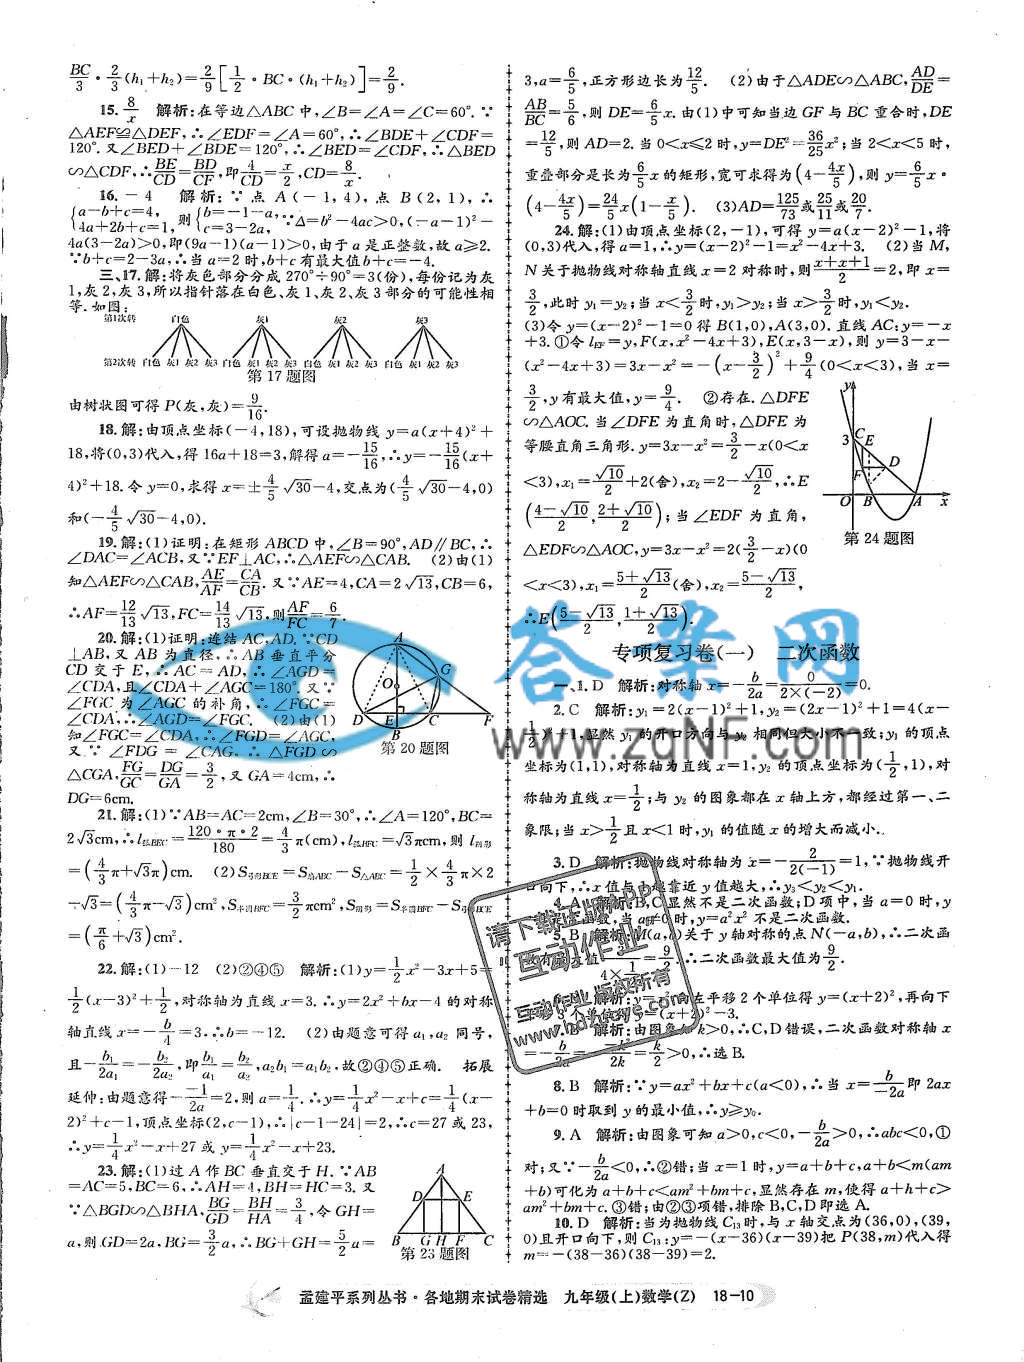 BC/3·2/3(h₁+h₂)=2/9[1/2·BC·(h₁+h₂)]=2/9.
15. 8/x 解析:在等边△ABC中,∠B=∠A=∠C=60°.∵
△AEF≌△DEF,∴∠EDF=∠A=60°,∴∠BDE+∠CDF=
120°.又∠BED+∠BDE=120°,∴∠BED=∠CDF,∴△BED
∽△CDF,∴BE/CD=BD/CF,即4/CD=x/2,CD=8/x.
16.-4 解析:∵点A(-1,4),点B(2,1),∴
{a-b+c=4, 4a+2b+c=1, 则{b=-1-a, c=3-2a, ∵△=b²-4ac>0,(-a-1)²-
4a(3-2a)>0,即(9a-1)(a-1)>0,由于a是正整数,故a≥2.
∵b+c=2-3a,∴当a=2时,b+c有最大值b+c=-4.
三、17.解:将灰色部分分成270°÷90°=3(份),每份记为灰
1,灰2,灰3,所以指针落在白色、灰1、灰2、灰3部分的可能性相
等.如图:
第1次转 白色 灰1 灰2 灰3
第2次转 白色 灰1 灰2 灰3 白色 灰1 灰2 灰3 白色 灰1 灰2 灰3 白色 灰1 灰2 灰3
第17题图
由树状图可得P(灰,灰)=9/16.
18.解:由顶点坐标(-4,18),可设抛物线y=a(x+4)²+
18,将(0,3)代入,得16a+18=3,解得a=-15/16,∴y=-15/16(x+
4)²+18.令y=0,求得x=±4/5√30-4,交点为(4/5√30-4,0)
和(-4/5√30-4,0).
19.解:(1)证明:在矩形ABCD中,∠B=90°,AD∥BC,∴
∠DAC=∠ACB,又∵EF⊥AC,∴△AEF∽△CAB. (2)由(1)
知△AEF∽△CAB,AE/AF=CA/CB.又∵AE=4,CA=2√13,CB=6,
∴AF=12/13√13,FC=14/13√13,则AF/FC=6/7.
20.解:(1)证明:连结AC,AD.∵CD
⊥AB,又AB为直径,∴AB垂直平分
CD交于E,∴AC=AD,∴∠AGD=
∠CDA,且∠CDA+∠AGC=180°.又∵
∠FGC为∠AGC的补角,∴∠FGC=
∠CDA,∴∠AGD=∠FGC. (2)由(1)
知∠FGC=∠CDA,∴∠FGD=∠AGC,
又∵∠FDG=∠CAG,∴△FGD∽
△CGA,FG/GC=DG/GA=3/2,又GA=4cm,∴
DG=6cm.
A G O D E C F B
第20题图
21.解:(1)∵AB=AC=2cm,∠B=30°,∴∠A=120°,BC=
2√3cm,∴l弧BEC=120·π·2/180=4/3π(cm),l弧BFC=√3πcm,则l阴影
=(4/3π+√3π)cm. (2)S弓形BCE=S扇ABC-S△ABC=1/2×4/3π×2
-√3=(4/3π-√3)cm²,S半圆BFC=3/2πcm²,S阴影=S半圆BFC-S弓形BCE
=(π/6+√3)cm².
22.解:(1)-12 (2)②④⑤ 解析:(1)y=1/2x²-3x+5=
1/2(x-3)²+1/2,对称轴为直线x=3.∴y=2x²+bx-4的对称
轴直线x=-b/4=3.∴b=-12. (2)由题意可得a₁,a₂同号,
且-b₁/2a₁=-b₂/2a₂,即b₁/a₁=b₂/a₂,a₂b₁=a₁b₂,故②④⑤正确. 拓展
延伸:由题意得-(-1)/2a=2,则a=1/4.∴y=1/4x²-x+c=1/4(x-
2)²+c-1,顶点坐标(2,c-1),∴|c-1-24|=2,∴c=27或23,
∴y=1/4x²-x+27或y=1/4x²-x+23.
23.解:(1)过A作BC垂直交于H.∵AB
=AC=5,BC=6,∴AH=4,BH=HC=3.又
∵△BGD∽△BHA,BG/GD=BH/HA=3/4,令GH=
a,则GD=2a,BG=3/2a,∴BG+GH=5/2a=
A D E B G H F C
第23题图
3,a=6/5,正方形边长为12/5. (2)由于△ADE∽△ABC,AD/DE=
AB/BC=5/6,则DE=6/5x.由(1)中可知当边GF与BC重合时,DE
=12/5,则AD=2.当0<x≤2时,y=DE²=36/25x²;当2<x<5时,
重叠部分是长为6/5x的矩形,宽可求得为(4-4x/5),则y=6/5x·
(4-4x/5)=24/5x(1-x/5). (3)AD=125/73或25/11或20/7.
24.解:(1)由顶点坐标(2,-1),可得y=a(x-2)²-1,将
(0,3)代入,得a=1,∴y=(x-2)²-1=x²-4x+3. (2)当M,
N关于抛物线对称轴直线x=2对称时,则(x+x+1)/2=2,即x=
3/2,此时y₁=y₂;当x<3/2时,y₁>y₂;当x>3/2时,y₁<y₂.
(3)令y=(x-2)²-1=0得B(1,0),A(3,0).直线AC:y=-x
+3.①令lEF=y,F(x,x²-4x+3),E(x,3-x),则y=3-x-
(x²-4x+3)=3x-x²=-(x-3/2)²+9/4(0<x<3),当x=
3/2,y有最大值,y=9/4. ②存在.△DFE
∽△AOC.当∠DFE为直角时,△DFE为
等腰直角三角形.y=3x-x²=3/2-x(0<x
<3),x₁=√10/2+2(舍),x₂=2-√10/2,∴E
((4-√10)/2,(2+√10)/2);当∠EDF为直角,
△EDF∽△AOC,y=3x-x²=2(3/2-x)(0
<x<3),x₁=(5+√13)/2(舍),x₂=(5-√13)/2,
∴E((5-√13)/2,(1+√13)/2).
y C 3 E D F O B A x
第24题图
专项复习卷(一) 二次函数
一、1.D 解析:对称轴x=-b/2a=0/(2×(-2))=0.
2.C 解析:y₁=2(x-1)²+1,y₂=(2x-1)²+1=4(x-
1/2)²+1,显然y₁的开口方向与y₂相同但大小不一致;y₁的顶点
坐标为(1,1),对称轴为直线x=1,y₂的顶点坐标为(1/2,1),对
称轴为直线x=1/2;与y₂的图象都在x轴上方,都经过第一、二
象限;当x>1/2且x<1时,y₁的值随x的增大而减小.
3.D 解析:抛物线对称轴为x=-2/2(-1)=1,∵抛物线开
口向下,∴x值与由越靠近y值越大,∴y₃<y₂<y₁.
4.A 解析:B,C显然不是二次函数;D项中,当a=0时,y
函数,当a≠0时,y=a²x²不是二次函数.
5.B 解析:M(a,b)关于y轴对称的点N(-a,b),∴二次函
9/2.∴二次函数最大值为9/2.
解析:y=x²向左平移2个单位得y=(x+2)²,再向下
3个单位得y=(x+2)²-3.
7.B 解析:由图象知k>0,∴C,D错误,二次函数对称轴x
=-b/2a=2k=k/2>0,∴选B.
8.B 解析:∵y=ax²+bx+c(a<0),∴当x=b/-2a即2ax
+b=0时取到y的最小值,∴y≥y₀.
9.A 解析:由图象可知a>0,c<0,-b/2a>0,∴abc<0,①
对;又∵-b/2a<0,∴②错;当x=1时,y=a+b+c,a+b<m(am
+b)可化为a+b+c<am²+bm+c,显然存在m,使得a+h+c>
am²+bm+c.③错;由②③项错,排除B,C,D即选A.
10.D 解析:当为抛物线C₁₃时,与x轴交点为(36,0),(39,
0)且开口向下,则C₁₃:y=-(x-36)(x-39)把P(38,m)代入得
m=-(38-36)(38-39)=2.
答案网
www.zqNF.com
请下载正版APP
互动作业
互动作业 版权所有
www.hdzuoye.com
孟建平系列丛书·各地期末试卷精选 九年级(上)数学(Z) 18-10